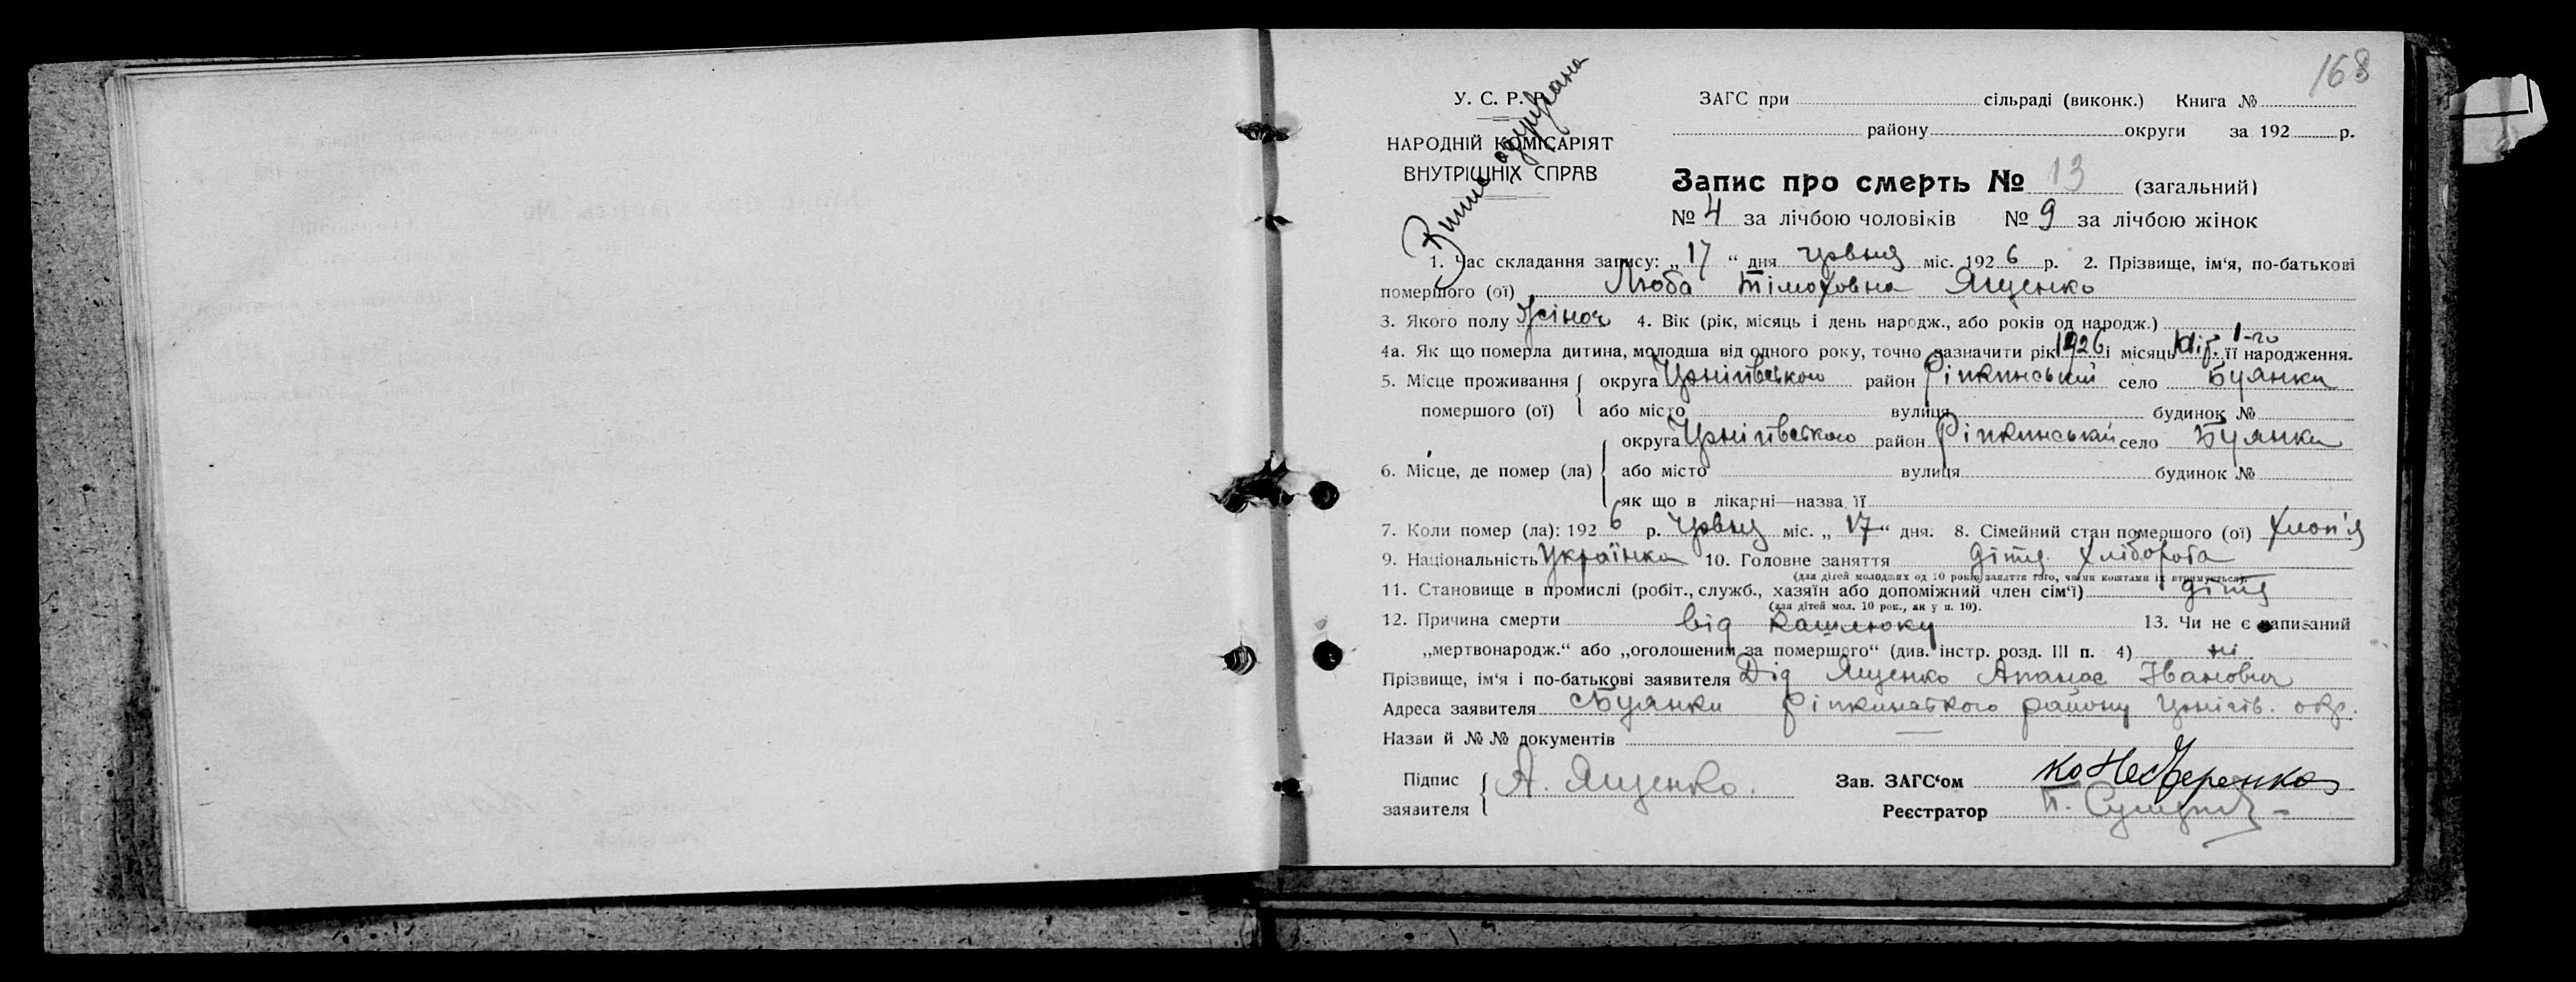 168
У. С. Р. Р.
НАРОДНІЙ КОМІСАРІЯТ
ВНУТРІШНІХ СПРАВ
ЗАГС при сільраді (виконк.) Книга №
району округи за 192 р.
Запис про смерть № 13 (загальний)
№ 4 за лічбою чоловіків № 9 за лічбою жінок
1. Час складання запису: „17“ дня міс. 1926 р. 2. Прізвище, ім'я, по-батькові
помершого (ої) Люба Тімоховна Ященко
3. Якого полу Жіноч 4. Вік (рік, місяць і день народж., або років од народж.)
4а. Як що померла дитина, молодша від одного року, точно зазначити рік 1926 і місяць 1-го її народження.
5. Місце проживання округа Чрнігівського район Ріпкинський село Буянки
помершого (ої) або місто вулиця будинок №
округа Чрнігівського район Ріпкинський село Буянки
6. Місце, де помер (ла) або місто вулиця будинок №
як що в лікарні—назва її
7. Коли помер (ла): 1926 р. міс. „17“ дня. 8. Сімейний стан помершого (ої) Хлоп'я
9. Національність Українка 10. Головне заняття дітя хлібороба
(для дітей молодших од 10 років заняття того, чиїми коштами їх втримується).
11. Становище в промислі (робіт., служб., хазяїн або допоміжний член сім'ї) дітя
(для дітей мол. 10 рок., як у п. 10).
12. Причина смерти від кашлюку 13. Чи не є записаний
„мертвонародж.“ або „оголошеним за помершого“ (див. інстр. розд. III п. 4) ні
Прізвище, ім'я і по-батькові заявителя Дід Ященко Апанас Іванович
Адреса заявителя с Буянки Ріпкинського району Чрнігів. окр.
Назви й № № документів
Підпис заявителя А. Ященко.
Зав. ЗАГС'ом
Реєстратор